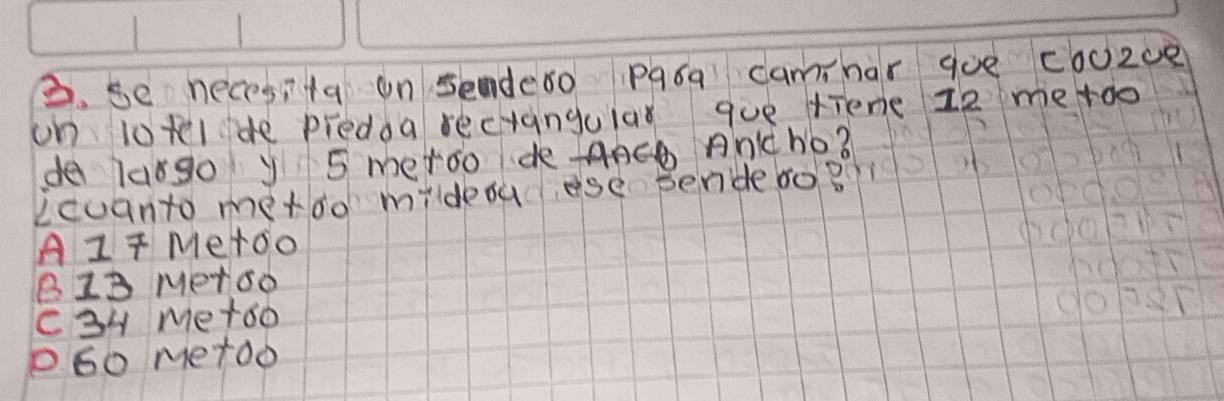 3. se necesita un sendero para caminar que couzue
un lotel de piedda rectangular que tiene 12 metoo
de largo y 5 metoo de Ancho?
¿cuanto metoo midera ese sendero?
A 17 Metoo
B 13 Metoo
C 34 Metoo
D 60 Metoo